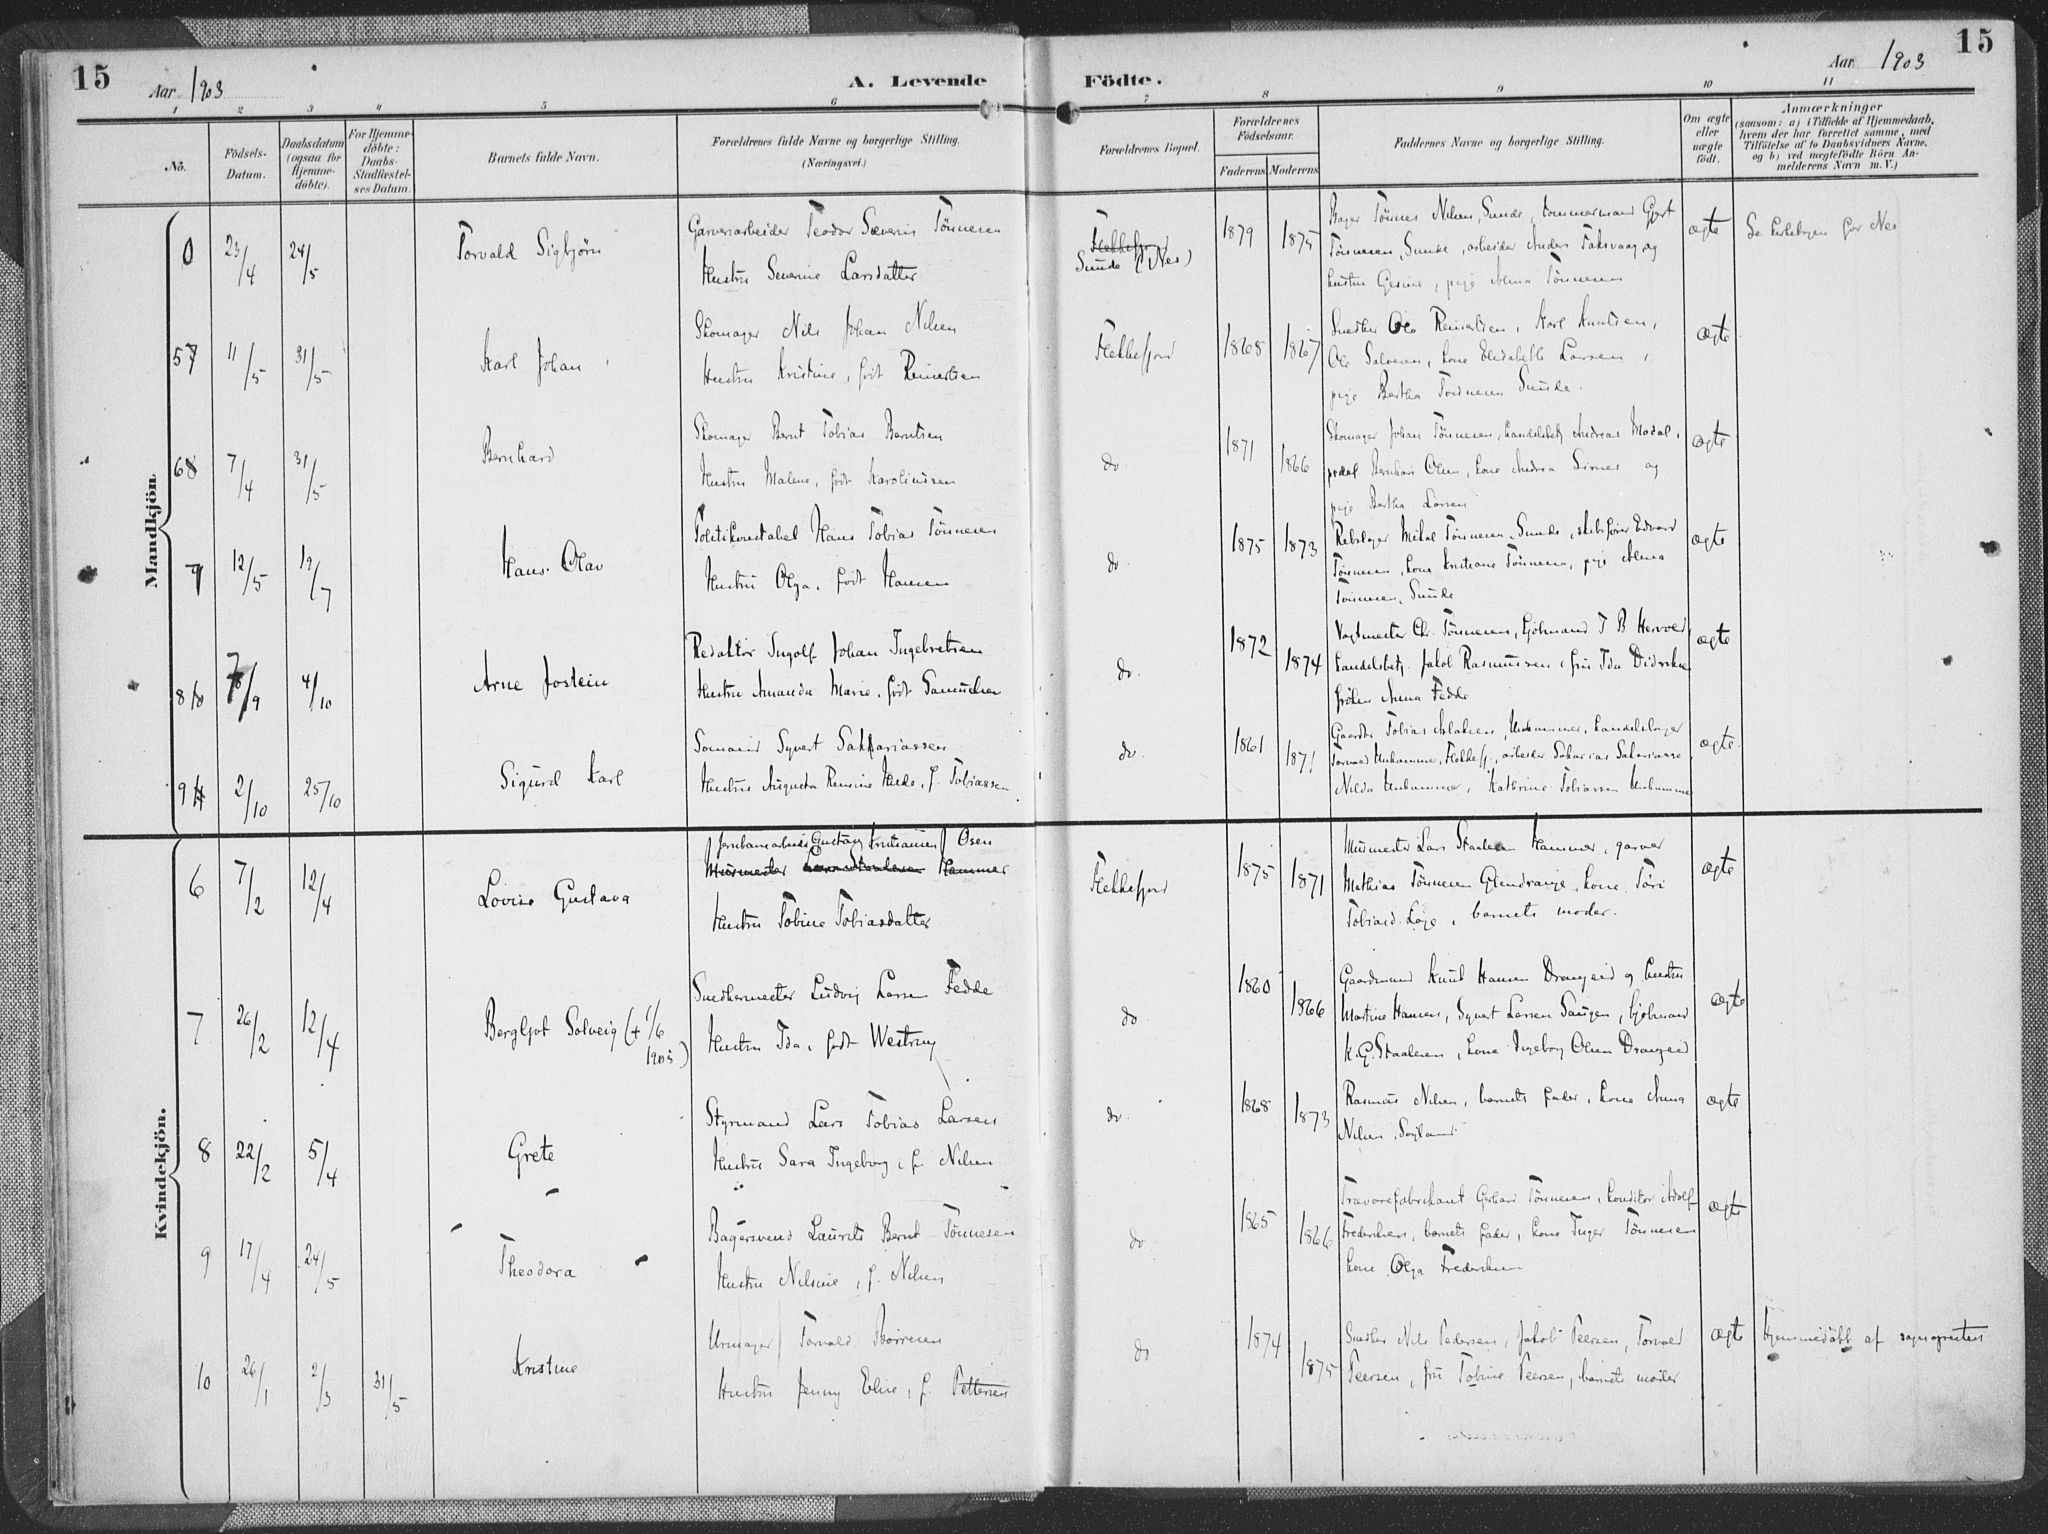 15
Aar 1903
A. Levende Födte.
Aar 1903
15
1 2 3 4 5 6 7 8 9 10 11
No.
Födsels-Datum.
Daabsdatum (ogsaa for Hjemme-döbte).
For Hjemme-döbte: Daabs-Stadfæstel-ses Datum.
Barnets fulde Navn.
Forældrenes fulde Navne og borgerlige Stilling. (Næringsvei.)
Forældrenes Bopæl.
Forældrenes Födselsaar.
Faderens Moderens
Faddernes Navne og borgerlige Stilling.
Om ægte eller uægte født.
Anmærkninger
(saasom: a) i Tilfælde af Hjemmedaab, hvem der har forrettet samme, med Tilföielse af to Daabsvidners Navne, og b) ved uægtefödte Börn An-melderens Navn m. V.)
Mandkjön.
0 23/4 24/5 Torvald Sigbjörn
Garveriarbeider Teodor Severin Tönnesen
Hustru Severine Larsdatter
Flekkefjord
Sunde (Nes)
1879 1875
Bager Tönnes Nilsen, Sunde, tömmermand Gjert
Tönnesen, Sunde, arbeider Anders Faksvaag og
hustru Gesine, pige Alma Tönnesen
ægte
Se kirkebogen for Nes
57 11/5 31/5 Karl Johan
Skomager Nils Johan Nilsen
Hustru Kristine, født Reinertsen
Flekkefjord
1868 1867
Snedker Ole Reinertsen, Karl Knutsen,
Ole Salvesen, kone Elisabeth Larsen,
pige Bertha Tönnesen Sunde.
ægte
68 7/4 31/5 Bernhard
Skomager Bernt Tobias Berntsen
Hustru Malene, født Karoliussen
do
1871 1866
Skomager Johan Tönnesen, handelsbetj. Andreas Modal,
Bernhard Olsen, kone Andrea Sirnes og
pige Bertha Larsen
ægte
7 12/5 19/7 Hans Olav
Politikonstabel Hans Tobias Tönnesen
Hustru Olga, født Hansen
do
1875 1873
Rebslager Mikal Tönnesen, Sunde, skibsfører Edvard
Tönnesen, kone Kristiane Tönnesen, pige Alma
Tönnesen, Sunde
ægte
8 7/9 4/10 Arne Jostein
Redaktör Ingolf Johan Ingebretsen
Hustru Amanda Marie, født Samuelsen
do.
1872 1874
Vagtmester Chr. Tönnesen, Kjøbmand T B Hervold,
handelsbetj. Jakob Rasmussen, fru Ida Didriksen
frøken Anna Fedde
ægte
9 2/10 25/10 Sigurd Karl
Sømand Syvert Sakkariassen
Hustru Augusta Rensine Hilde, f. Tobiassen
do.
1861 1871
Gaardbr Tobias Aslaksen, Unhammer, handelsbager
Torvald Unhammer, Flekkefj., arbeider Sakarias Sakariasse,
Nilda Unhammer, Kathrine Tobiassen Unhammer
ægte
Kvindekjön.
6 7/2 12/4 Lovise Gustava
Jernbanearbeider Gustav Kristiansen Osen
Murmester Hammer
Hustru Tobine Tobiasdatter
Flekkefjord
1875 1871
Murmester Lars Staalesen Hammer, garver
Mathias Tönnesen Glendrange, kone Töri
Tobiasd. Løge, barnets moder.
ægte
7 26/2 12/4 Bergljot Solveig (+ 1/6 1903)
Snedkermester Ludvig Larsen Fedde
Hustru Ida, født Westrup
do
1860 1866
Gaardmand Knut Hansen Drangeid og hustru
Martine Hansen, Syvert Larsen Saugen, kjøbmand
K.G. Staalesen, kone Ingeborg Olsen Drangeid
ægte
8 22/2 5/4 Grete
Styrmand Lars Tobias Larsen
Hustru Sara Ingeborg, f. Nilsen
do.
1868 1873
Rasmus Nilsen, barnets fader, kone Anna
Nilsen
ægte
9 17/4 24/5 Theodora
Bagersvend Laurits Bernt Tönnesen
Hustru Nilsine, f. Nilsen
do
1865 1866
Trævarefabrikant Gerhard Tönnesen, konditor Adolf
Frederiksen, barnets fader, kone Inger Tönnesen
kone Olga Frederiksen
ægte
10 26/1 2/3 31/5 Kristine
Urmager Torvald
Hustru Jenny Elise, f. Pettersen
do
1874 1875
Snedker Nils Pedersen, Jakob Peersen, Torvald
Peersen, fru Tobine Peersen, barnets moder
ægte
Hjemmedöbt af sognepresten